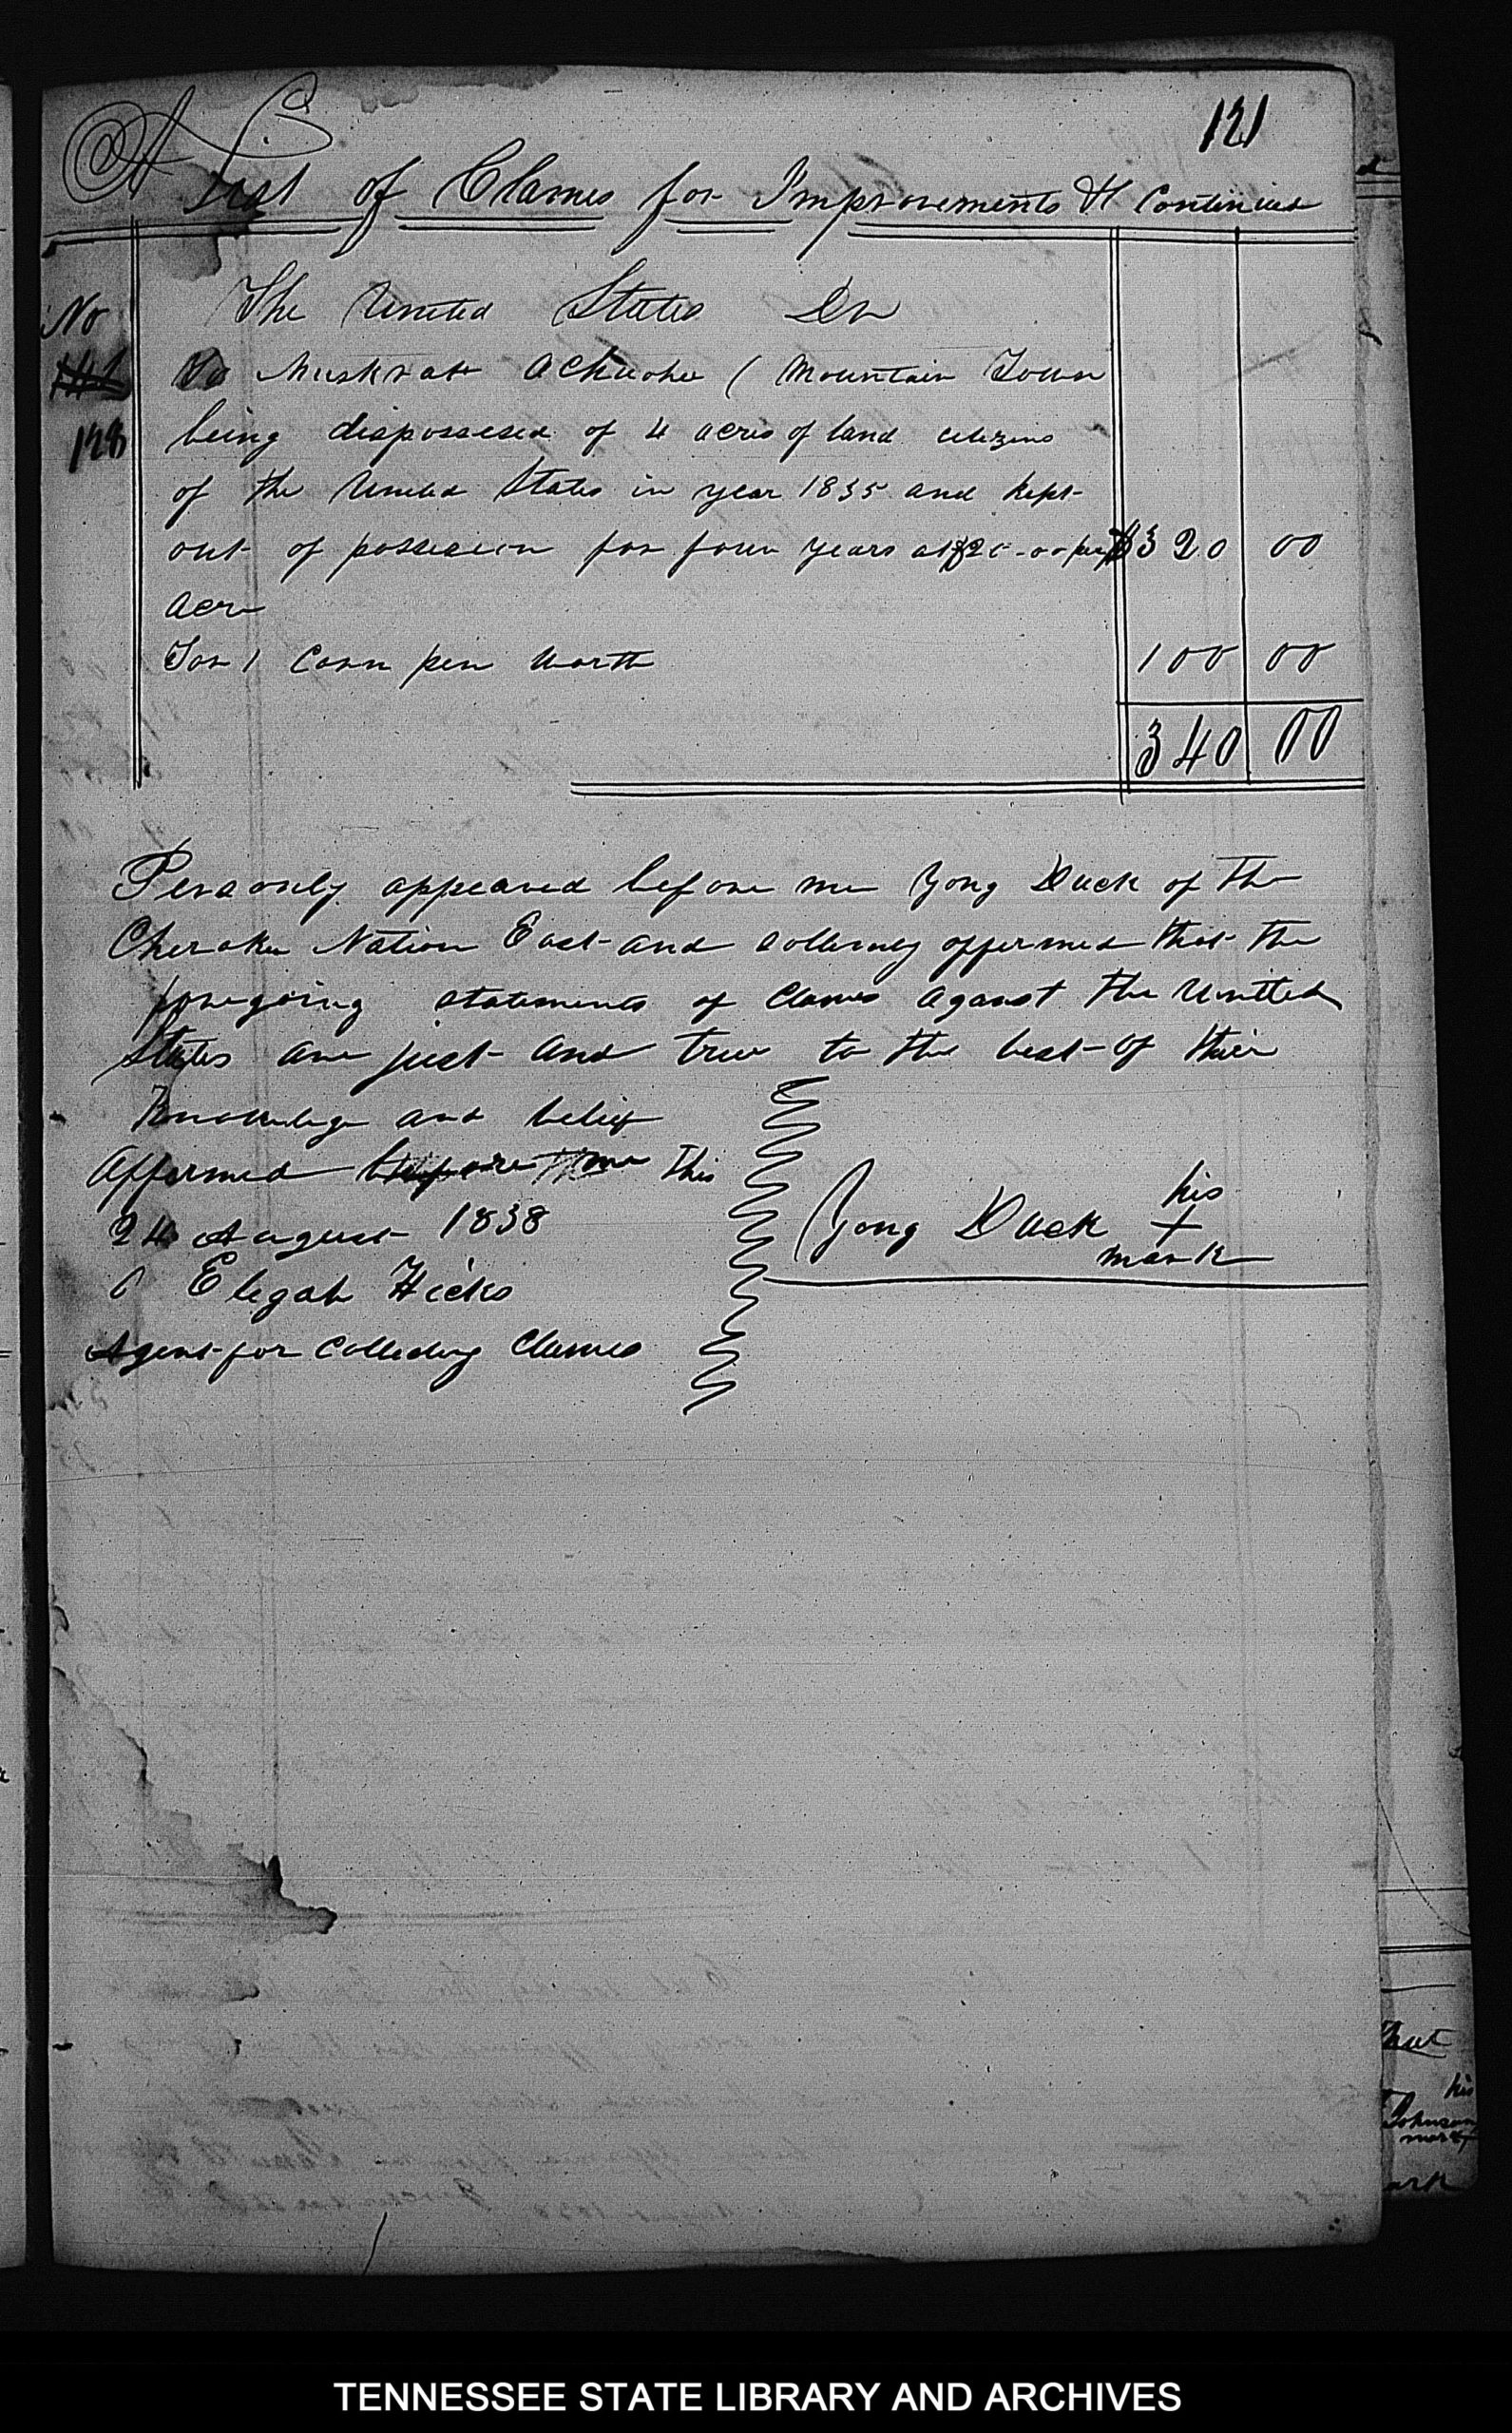 121
A List of Clames for Improvements & Continued
The United States Dr
No
To Muskrat (Mountain Town
128
being dispossesed of 4 acres of land citizens
of the United States in year 1835 and kept
out of possession for four years at $20.00 per $320 00
Acre
For 1 Corn pen worth 100 00
340 00
Personly appeared before me Yong Duck of the
Cherokee Nation East and sollemly affermed that the
foregoing statements of Clames against the United
States are just and true to the best of thier
Knowledge and belief
Affermed before me this
24 August 1838
Elegah Hicks
Agent for Collecting Clames
Yong Duck his
+
mark
that
his
Johnson
mark
ark
TENNESSEE STATE LIBRARY AND ARCHIVES